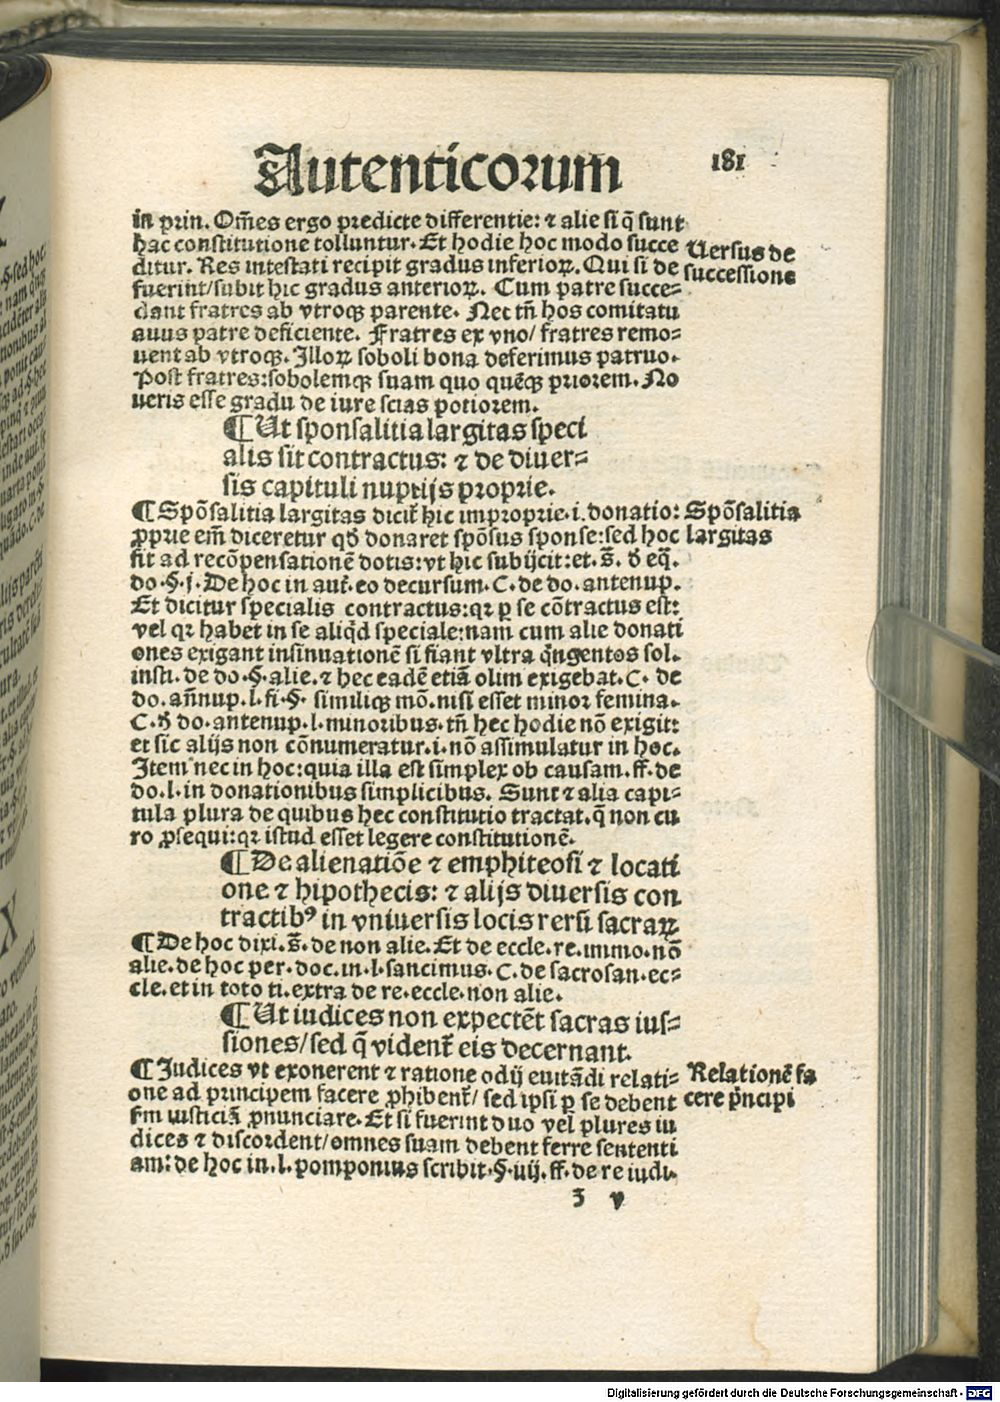 Autenticorum
181
in prin. Om̃es ergo predicte differentie: ⁊ alie si q̃ sunt
hac constitutione tolluntur. Et hodie hoc modo succe
ditur. Res intestati recipit gradus inferioꝝ. Qui si de
fuerint/subit hic gradus anterioꝝ. Cum patre succe=
dant fratres ab vtroqꝫ parente. Nec tñ hos comitatu
auus patre deficiente. Fratres ex vno/ fratres remo=
uent ab vtroqꝫ. Illoꝝ soboli bona deferimus patruo.
Post fratres:sobolemqꝫ suam quo quẽqꝫ priorem. No
ueris esse gradu de iure scias potiorem.
Uersus de
successione
¶ Ut sponsalitia largitas speci
alis sit contractus: ⁊ de diuer=
sis capituli nuptijs proprie.
¶ Spõsalitia largitas dicit̃ hic improprie.i.donatio:
ꝓprie em̃ diceretur qđ donaret spõsus sponse:sed hoc
fit ad recõpensationẽ dotis:vt hic subijcit:et.s̃. đ eq̃.
do.§.j. De hoc in aut̃. eo decursum. C. de do. antenup.
Et dicitur specialis contractus:qꝛ ꝑ se cõtractus est:
vel qꝛ habet in se aliq̃d speciale:nam cum alie donati
ones exigant insinuationẽ si fiant vltra q̃ngentos sol.
insti. de do.§.alie.⁊ hec eadẽ etiã olim exigebat. C. de
do. añnup.l.fi.§. similiqꝫ mõ.nisi esset minor femina.
C.đ do.antenup.l.minoribus.tñ hec hodie nõ exigit:
et sic alijs non cõnumeratur.i.nõ assimulatur in hoc.
Item nec in hoc:quia illa est simplex ob causam.ff.de
do.l.in donationibus simplicibus. Sunt ⁊ alia capi=
tula plura de quibus hec constitutio tractat.q̃ non cu
ro ꝓsequi:qꝛ istud esset legere constitutionẽ.
Spõsalitia
largitas
¶ De alienatiõe ⁊ emphiteosi ⁊ locati
one ⁊ hipothecis: ⁊ alijs diuersis con
tractibꝰ in vniuersis locis rersi sacraꝝ
¶ De hoc dixi.s̃.de non alie. Et de eccle.re.immo.nõ
alie.de hoc per.doc.in.l.sancimus.C.de sacrosan.ec=
cle.et in toto ti.extra de re.eccle.non alie.
¶ Ut iudices non expectẽt sacras ius=
siones/sed q̃ vident̃ eis decernant.
¶ Judices vt exonerent ⁊ ratione odij euitãdi relati=
one ad principem facere ꝓhibent̃/ sed ipsi ꝑ se debent
fm iusticiã ꝓnunciare. Et si fuerint duo vel plures iu
dices ⁊ discordent/omnes suam debent ferre sententi
am:de hoc in.l.pomponius scribit.§.iiij.ff.de re iudi.
Relationẽ fa
cere p̃ncipi
ʒ v
Digitalisierung gefördert durch die Deutsche Forschungsgemeinschaft - DFG